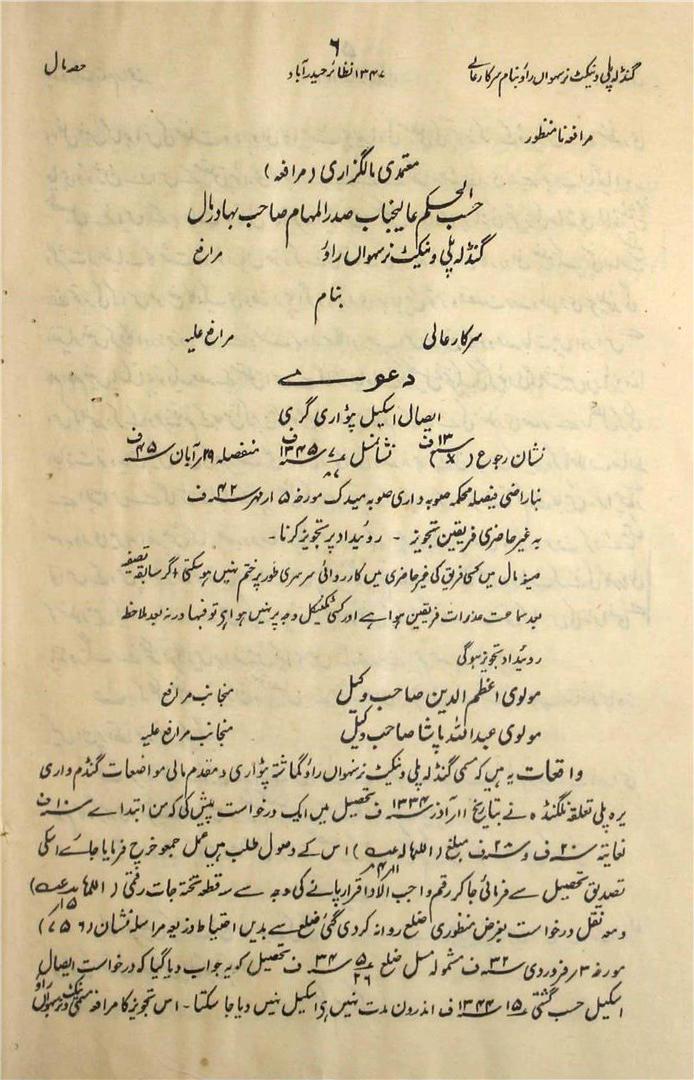 ۶
گنڈلہ پلی ونیکٹ نرسہواں راؤ بنام سرکارعالی ۱۳۴۷ نظائر حیدرآباد حصہ مال
مرافعہ نا منظور
معتمدی مالگزاری (مرافعہ)
حسب الحکم عالیجناب صدر المہام صاحب بہادر مال
گنڈلہ پلی ونیکٹ نرسہواں راؤ مرافع
بنام
سرکار عالی مرافع علیہ
دعوے
ایصال اسکیل پٹواری گری
نشان رجوع ( ) ۱۳ ف نشان مسل ۷ ۱۳۴۵ ف منفصلہ ۲۹ر آبان ۴۵ ف
بناراضی فیصلہ محکمہ صوبہ داری صوبہ میدک مورخہ ۵ ارمہر ۴۲ ف
بہ غیر حاضری فریقین تجویز - روئداد پر تجویز کرنا -
صیغہ مال میں کسی فریق کی غیر حاضری میں کارروائی سرسری طور پر ختم نہیں ہو سکتی اگر سابقہ تصفیہ
بعد سماعت عذرات فریقین ہوا ہے اور کسی ٹکنیکل وجہ پر نہیں ہوا ہو تو فبہا ورنہ بعد ملاحظہ
روئداد تجویز ہوگی
مولوی اعظم الدین صاحب وکیل منجانب مرافع
مولوی عبداللہ پاشا صاحب وکیل منجانب مرافع علیہ
واقعات یہ ہیں کہ مسمی گنڈلہ پلی ونیکٹ نرسہواں راؤ گماشتہ پٹواری و مقدم مالی مواضعات گنڈم واری
یرہ پلی تعلقہ نلگنڈہ نے بتاریخ ۱۱ر آذر ۱۳۳۴ ف تحصیل میں ایک درخواست پیش کی کہ من ابتداے ۱۰ ف
لغایتہ ۲۰ ف و ۲۸ ف مبلغ ( ) اس کے وصول طلب ہیں عمل جمع و خرچ فرمایا جائے اسکی
تصدیق تحصیل سے فرمائی جاکر رقم واجب الادا قرار پانے کی وجہ سے سہ قطعہ تختہ جات رفتی ( )
ومعہ نقل درخواست بغرض منظوری ضلع روانہ کردی گئی ضلع سے بدیں احتیاط ذریعہ مراسلہ نشان (۷۵۶)
مورخہ ۳ر فروردی ۳۲ ف مشمولہ مسل ضلع ۵ ۲۶ ۳۴ ف تحصیل کو یہ جواب دیا گیا کہ درخواست ایصال
اسکیل حسب گشتی ۱۵ ۱۳۴۴ ف اندرون مدت نہیں ہے اسکیل نہیں دیا جا سکتا - اس تجویز کا مرافعہ مسمی ونیکٹ نرسہواں راؤ